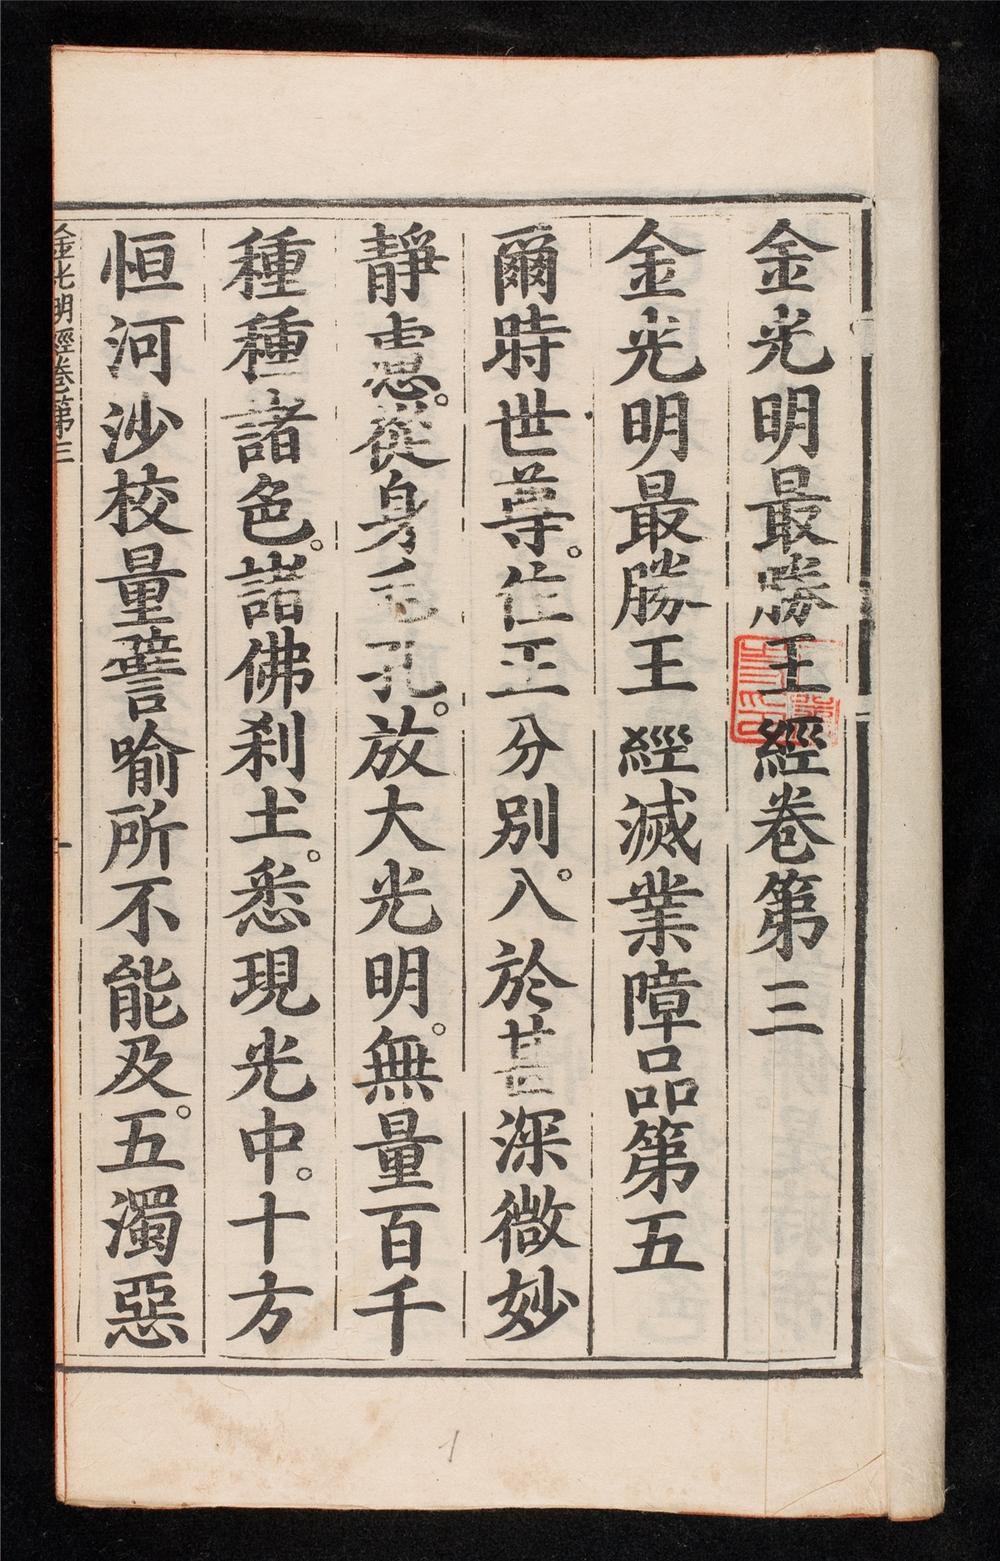 金光明最勝王經卷第三
金光明最勝王經滅業障品第五
爾時世尊。住正分別。入於甚深微妙
靜慮。從身毛孔。放大光明。無量百千
種種諸色。諸佛刹土。悉現光中。十方
恒河沙校量譬喻所不能及。五濁惡
金光明經卷第三
1